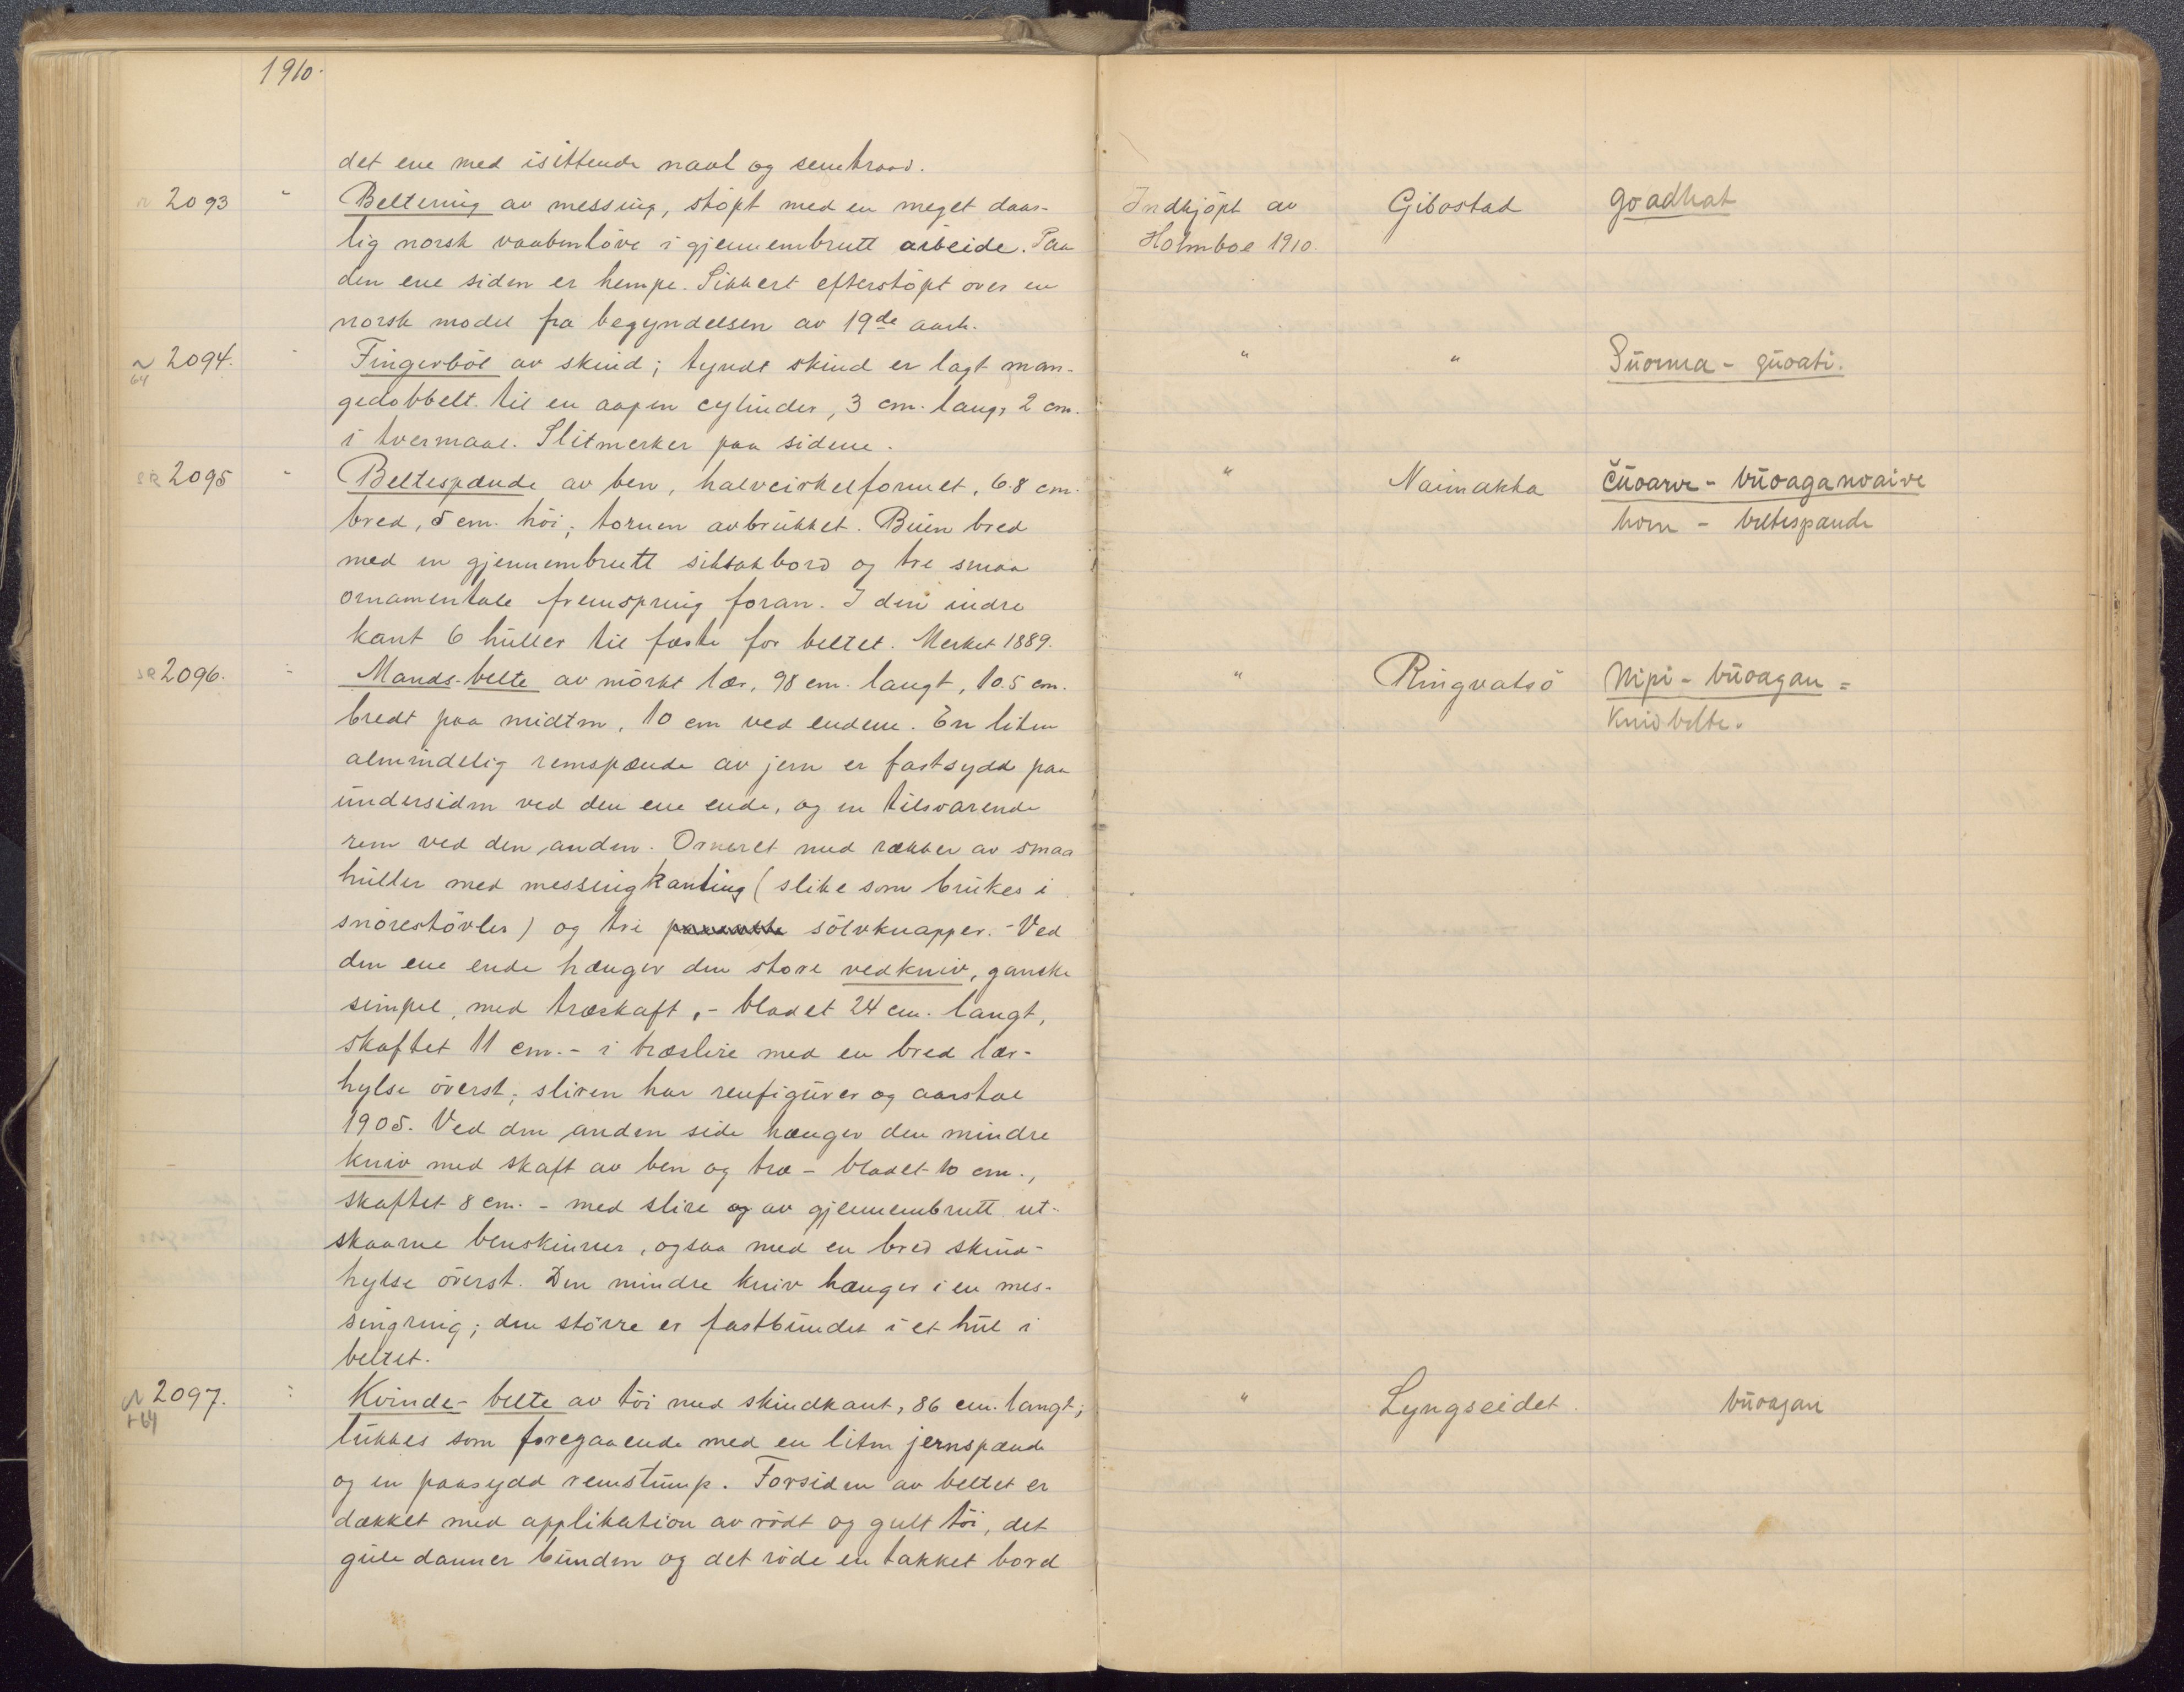 1910.
det ene med isittende naal og senetraad.
N 2093 " Beltering av messing, støpt med en meget daar- Indkjöpt av Gibostad goadhat
lig norsk vaabenlöve i gjennembrutt arbeide. Paa Holmboe 1910.
den ene siden er hempe. Sikkert efterstöpt over en
norsk model fra begyndelsen av 19de aarh.
N 2094. " Fingerböl av skind; tyndt skind er lagt man- " " Suorma - guoati.
64
gedobbelt til en aapen cylinder, 3 cm. lang, 2 cm.
i tvermaal. Slitmerker paa sidene.
SR 2095 " Beltespænde av ben, halvcirkelformet, 6.8 cm. " Naimakka čuoarve - buoaganoaive
bred, 5 cm. höi; tornen avbrukket. Buen bred horn - beltespænde
med en gjennembrutt siksakbord og tre smaa
ornamentale fremspring foran. I den indre
kant 6 huller til fæste for beltet. Merket 1889.
SR 2096. " Mands-belte av mörkt lær, 98 cm. langt, 10.5 cm. " Ringvatsö Nipi - buoagan =
bredt paa midten, 10 cm ved endene. En liten Knivbelte.
almindelig remspænde av jern er fastsydd paa
undersiden ved den ene ende, og en tilsvarende
rem ved den anden. Orneret med rækker av smaa
huller med messingkanting (slike som brukes i
snörestövler) og tre sölvknapper. - Ved
den ene ende hænger den store vedkniv, ganske
simpel, med træskaft, - bladet 24 cm. langt,
skaftet 11 cm. - i træslire med en bred lær-
hylse överst; sliren har renfigurer og aarstal
1905. Ved den anden side hænger den mindre
kniv med skaft av ben og træ - bladet 10 cm.,
skaftet 8 cm. - med slire og av gjennembrutt ut-
skaarne benskinner, ogsaa med en bred skind-
hylse överst. Den mindre kniv hænger i en mes-
singring; den större er fastbundet i et hul i
beltet.
N 2097. " Kvinde-belte av töi med skindkant, 86 cm. langt; " Lyngseidet. buoagan
+64
lukkes som foregaaende med en liten jernspænde
og en paasydd remstump. Forsiden av beltet er
dækket med applikation av rödt og gult töi, det
gule danner bunden og det röde en takket bord